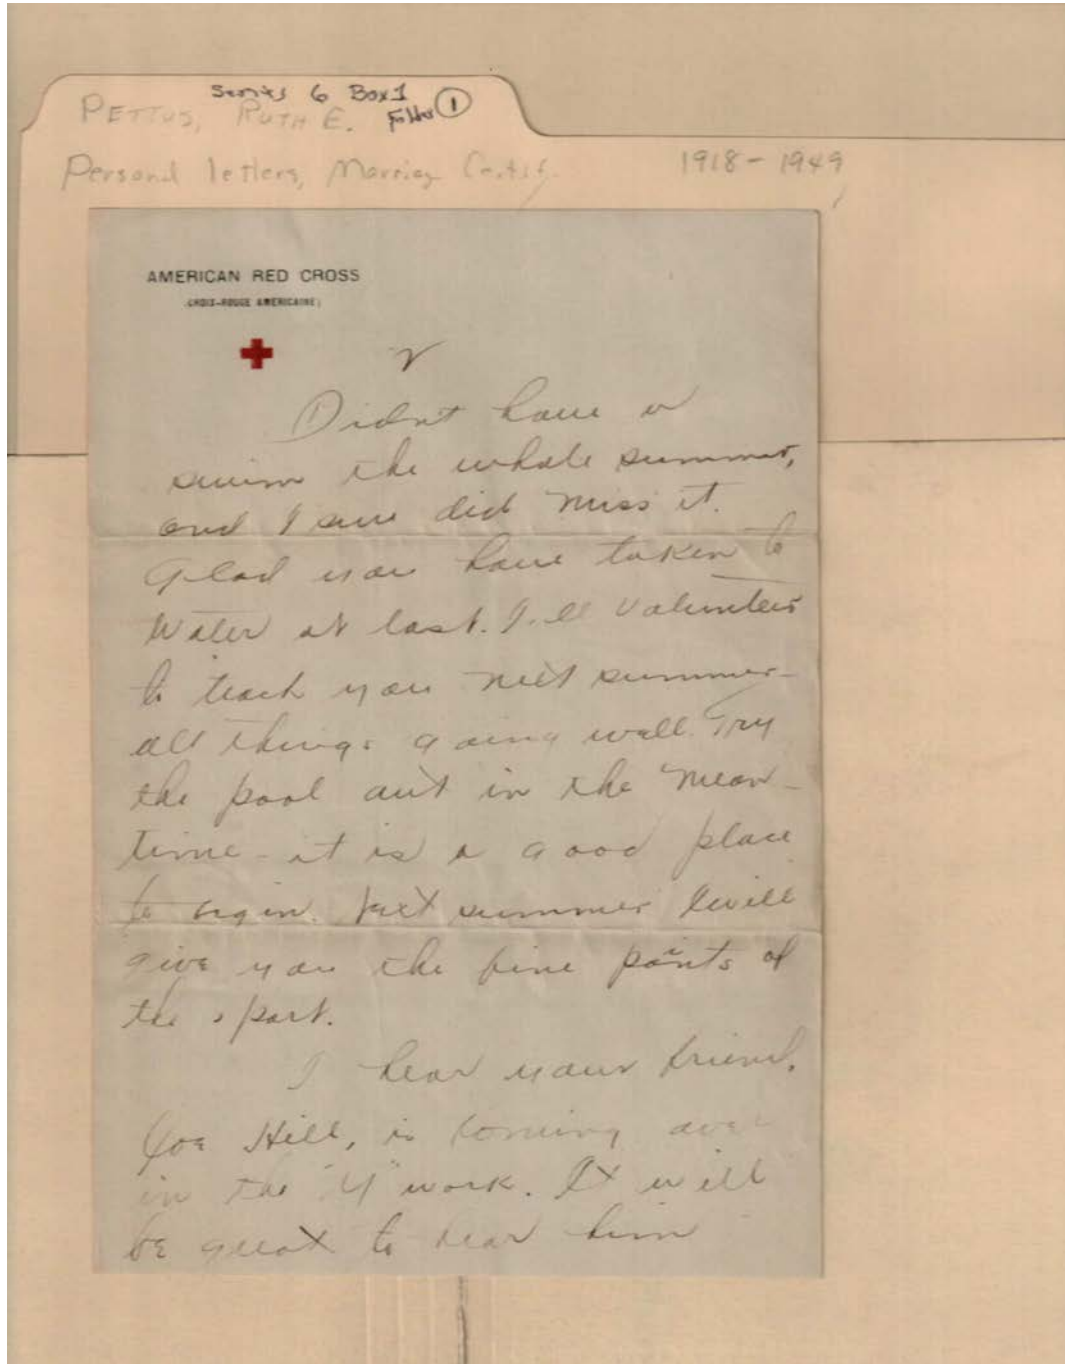 Series 6 Box 1
PETTUS, RUTH E. Folder 1
Personal letters, Marriag Certif. 1918-1949
AMERICAN RED CROSS
(CROIX-ROUGE AMERICAINE)
Didnt have a
swim the whole summer,
and I sure did miss it.
Glad you have taken to
Water at last. I'll volunteer
to teach you next summer -
all things going well. Try
the pool out in the mean -
time - it is a good place
to begin. Next summer I will
give you the fine points of
the sport.
I hear your friend,
Joe Hill, is coming over
in the "Y" work. It will
be great to hear him